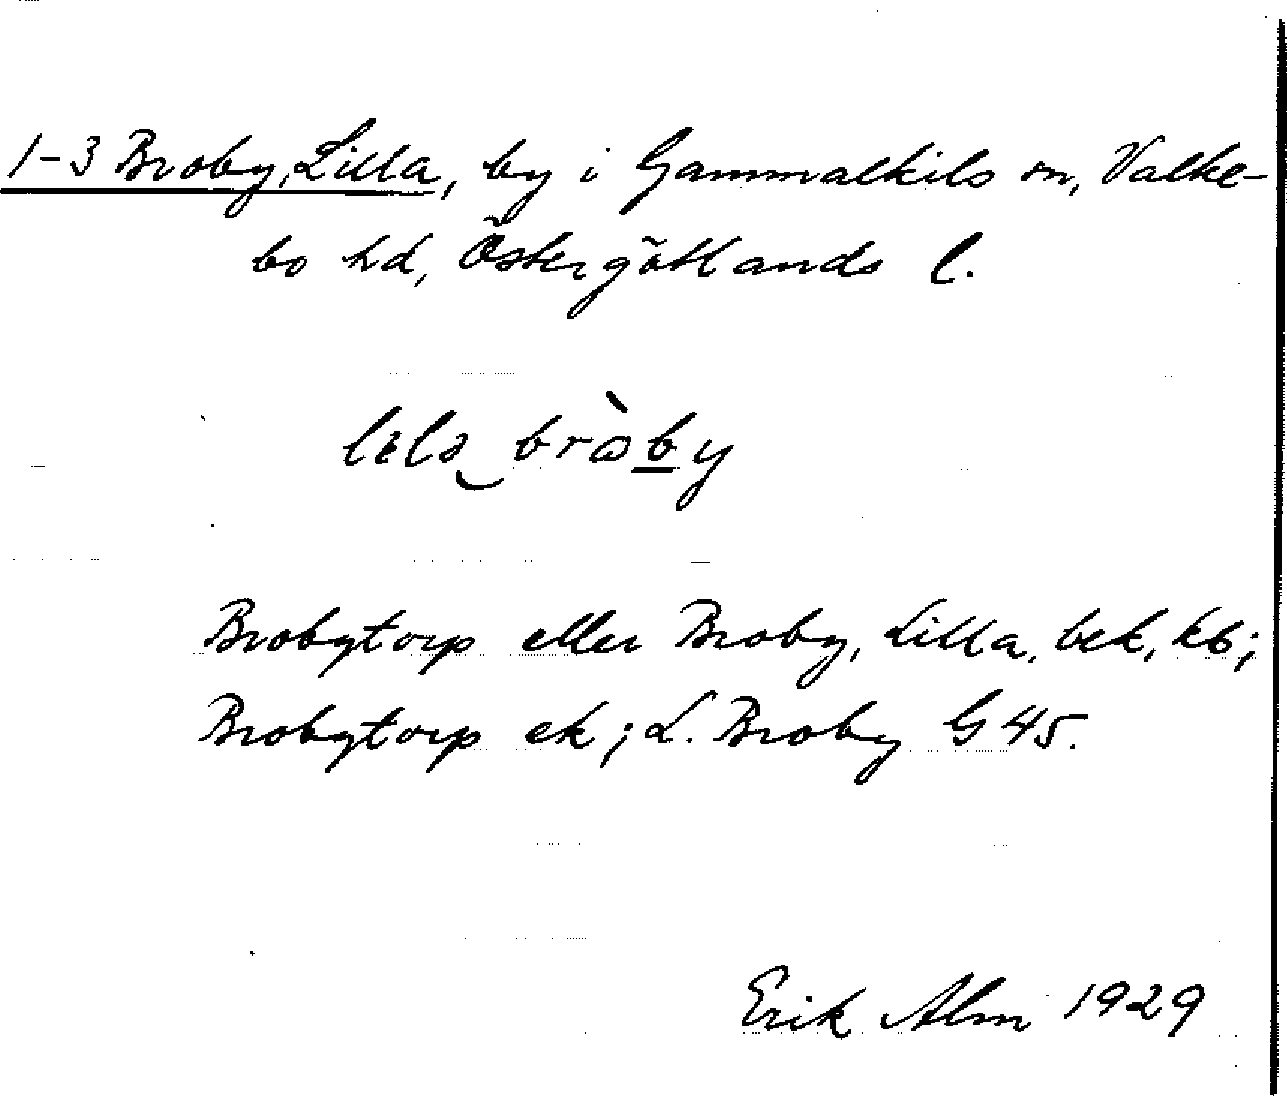 1-3 Broby, Lilla, by i Gammalkils sn, Valke-
bo hd, Östergötlands l.
brò̀by
Brobytorp eller Broby, Lilla, bek, kb;
Brobytorp ek; L. Broby G 45.
Erik Alm 1929